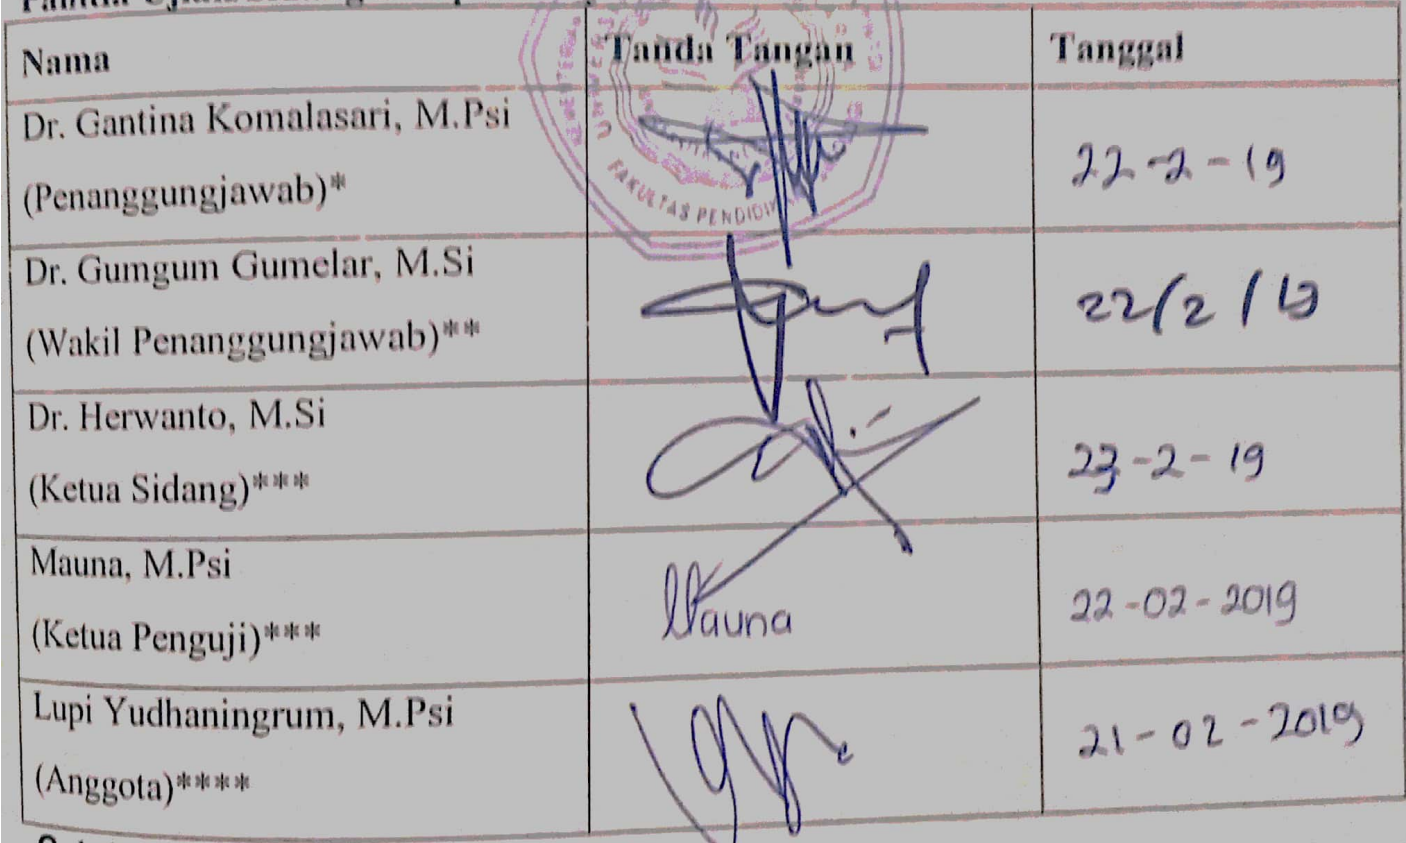 Nama Tanda Tangan Tanggal
Dr. Gantina Komalasari, M.Psi
(Penanggungjawab)*
22-2-19
FAKULTAS PENDIDIK
Dr. Gumgum Gumelar, M.Si
(Wakil Penanggungjawab)**
22/2/19
Dr. Herwanto, M.Si
(Ketua Sidang)***
23-2-19
Mauna, M.Psi
(Ketua Penguji)***
Mauna
22-02-2019
Lupi Yudhaningrum, M.Psi
(Anggota)****
21-02-2019